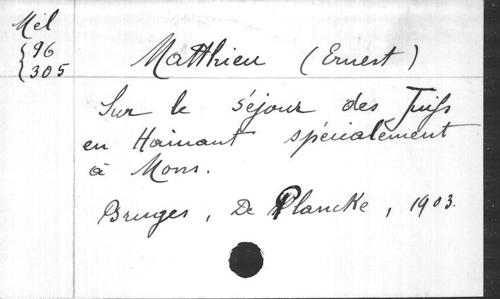 Mél
96
305
Matthieu (Ernest)
Sur le séjour des Juifs
en Hainaut spécialement
à Mons.
Bruges, De Plancke, 1903.